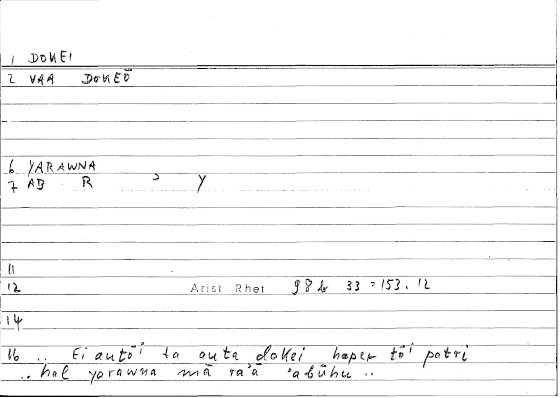 1 DOKEI
2 VAA DOKEŌ
6 YARAWNA
7 AB R ʾ Y
11
12 Arist Rhet 98b 33 = 153.12
14
16 .. Ei autōi ta auta dokei haper tōi patri
.. hal yarawna mā raʾā ʾabūhu ..